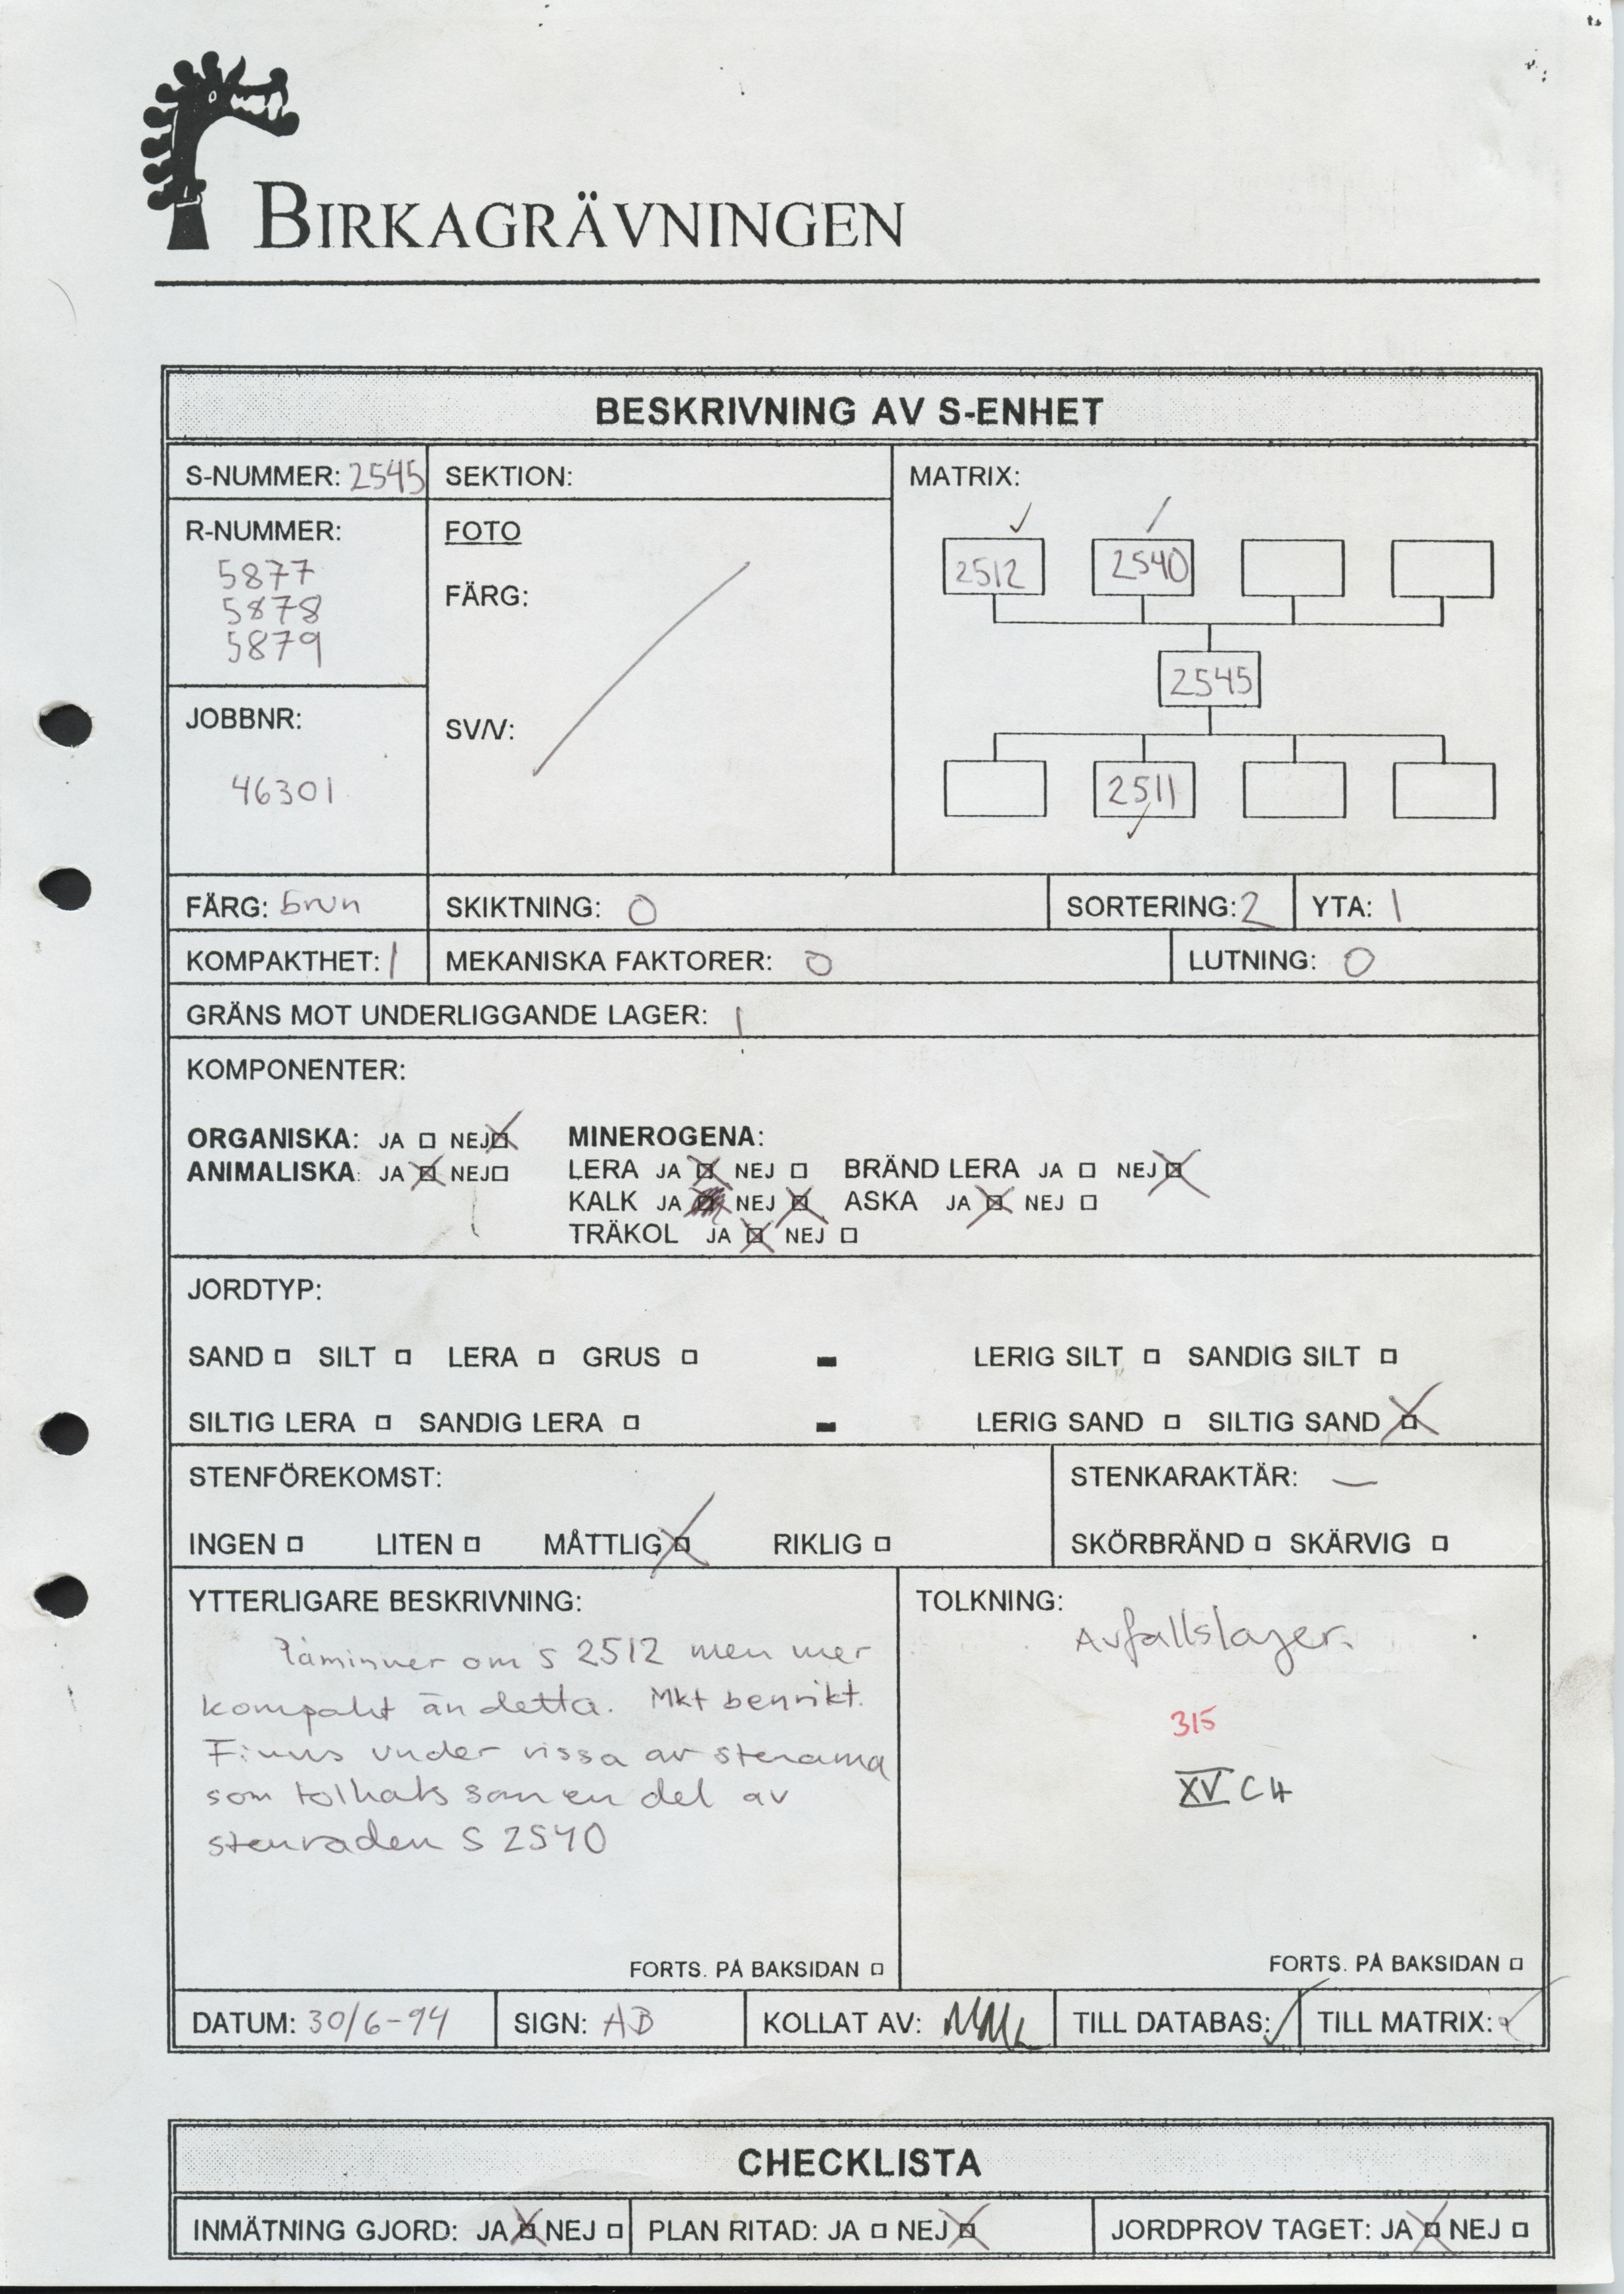 BIRKAGRÄVNINGEN
BESKRIVNING AV S-ENHET
S-NUMMER: 2545
SEKTION:
MATRIX:
R-NUMMER:
5877
5878
5879
FOTO
FÄRG:
SV/V:
2512 2540
2545
2511
JOBBNR:
46301
FÄRG: brun SKIKTNING: 0 SORTERING: 2 YTA: 1
KOMPAKTHET: 1 MEKANISKA FAKTORER: 0 LUTNING: 0
GRÄNS MOT UNDERLIGGANDE LAGER: 1
KOMPONENTER:
ORGANISKA: JA NEJ MINEROGENA:
ANIMALISKA: JA NEJ LERA JA NEJ BRÄND LERA JA NEJ
KALK JA NEJ ASKA JA NEJ
TRÄKOL JA NEJ
JORDTYP:
SAND SILT LERA GRUS - LERIG SILT SANDIG SILT
SILTIG LERA SANDIG LERA - LERIG SAND SILTIG SAND
STENFÖREKOMST: STENKARAKTÄR: —
INGEN LITEN MÅTTLIG RIKLIG SKÖRBRÄND SKÄRVIG
YTTERLIGARE BESKRIVNING:
Påminner om S 2512 men mer
kompakt än detta. Mkt benrikt.
Finns under vissa av stenarna
som tolkats som en del av
stenraden S 2540
FORTS. PÅ BAKSIDAN
TOLKNING:
Avfallslager.
315
XV CH
FORTS. PÅ BAKSIDAN
DATUM: 30/6-94 SIGN: AB KOLLAT AV: TILL DATABAS: TILL MATRIX:
CHECKLISTA
INMÄTNING GJORD: JA NEJ PLAN RITAD: JA NEJ JORDPROV TAGET: JA NEJ